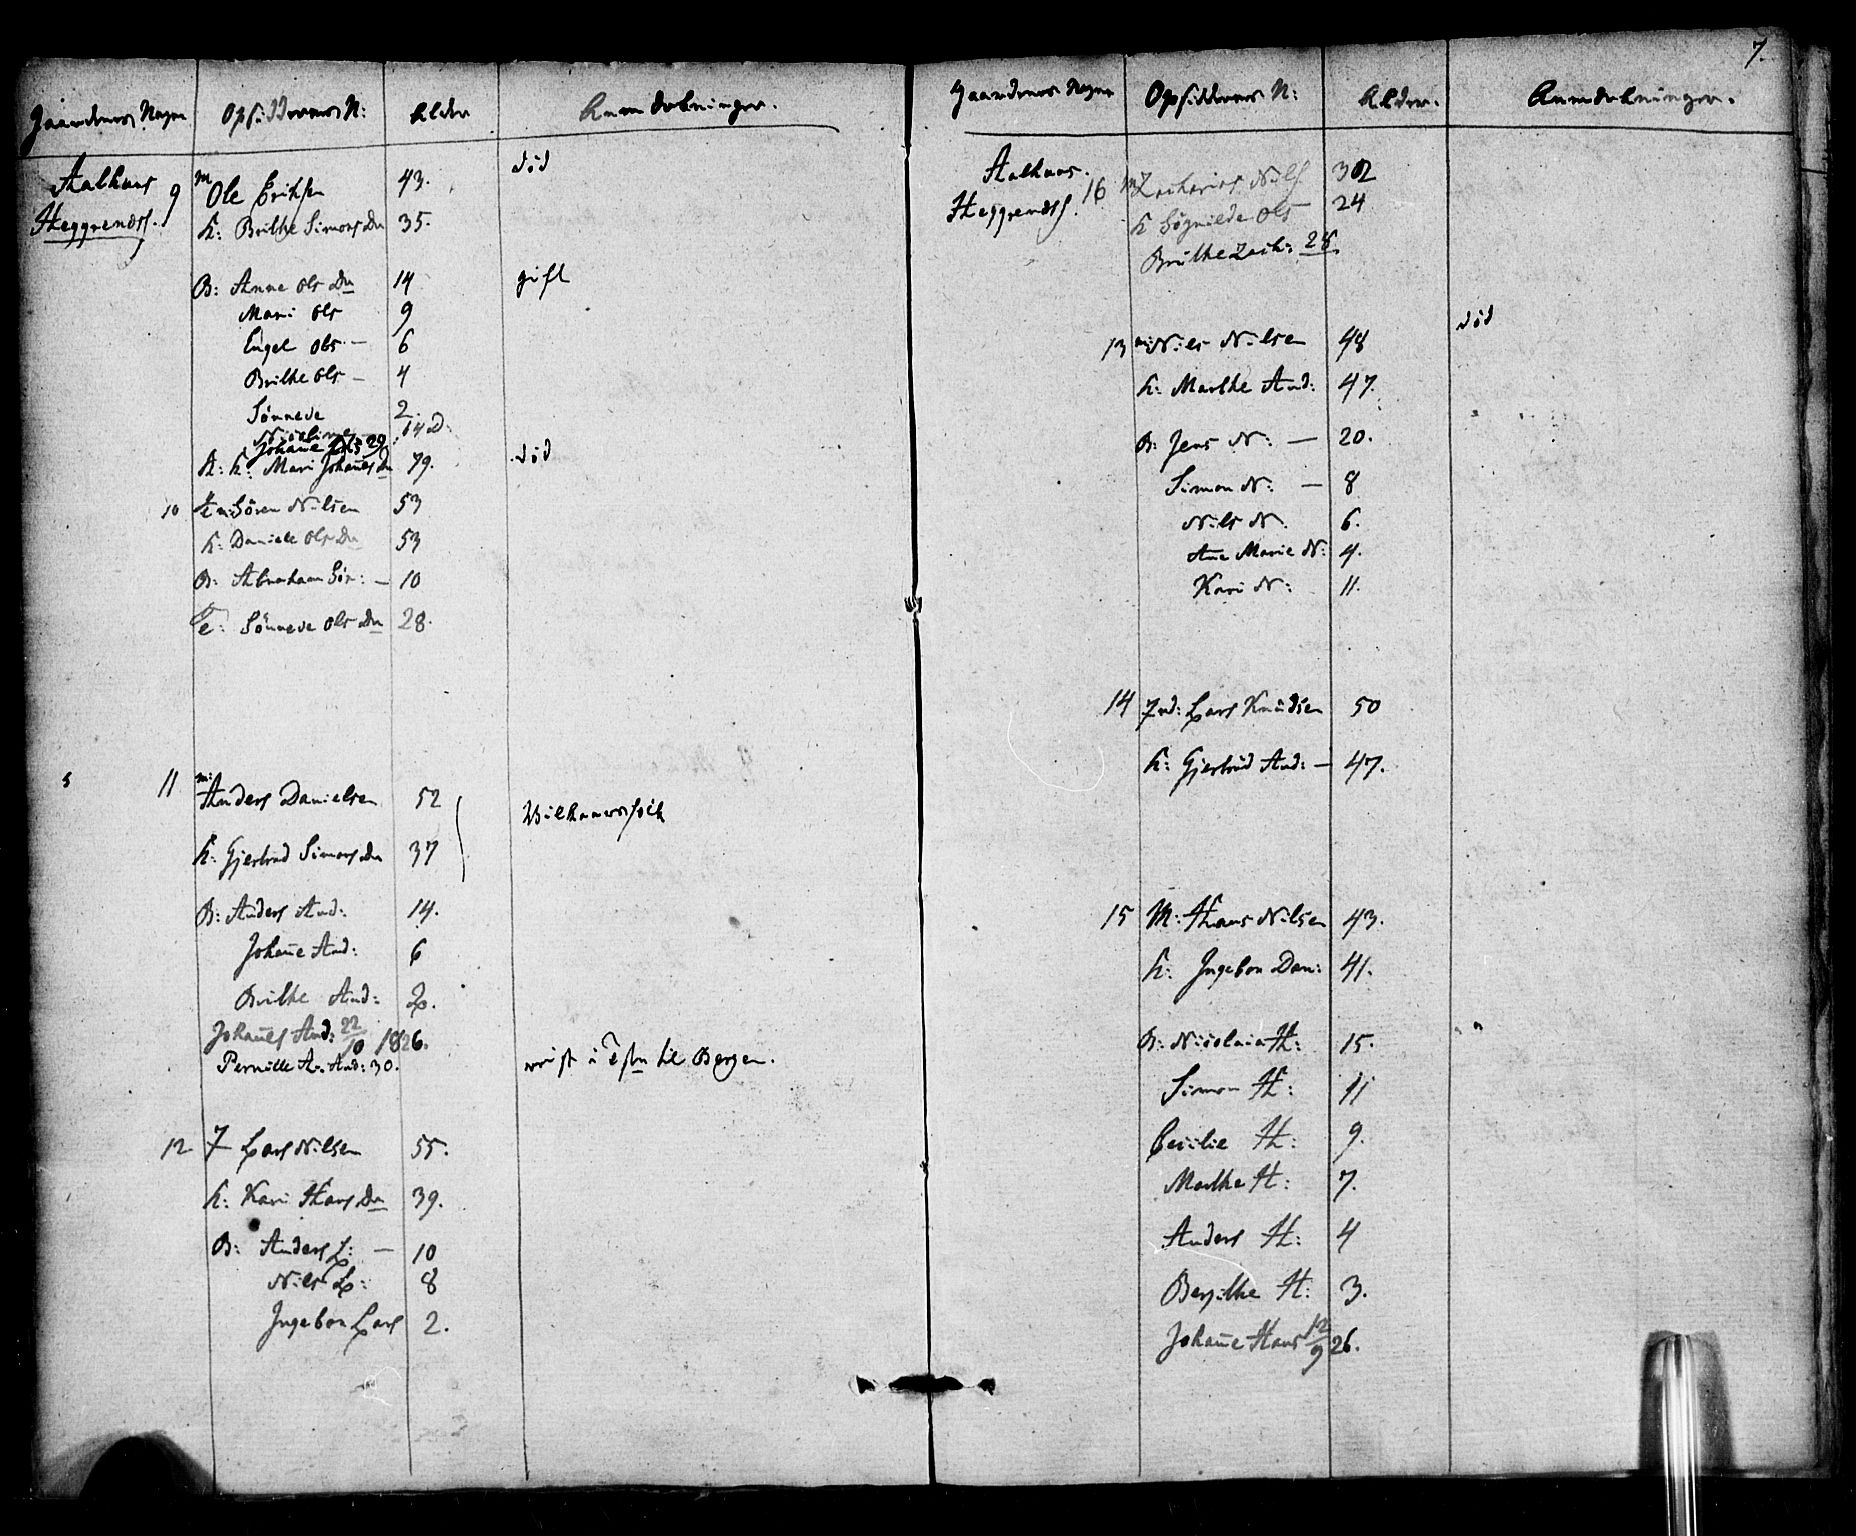 Gaardenes Nagne Opsiddernes N: Alder Anmerkninger.
Aalhuus 9 m Ole Erichsen 43. død
Heggrendsl. K: Brithe Simons Dn 35.
B: Anne Ols Dn 14 gift
Mari Ols 9
Engel Ols — 6
Brithe Ols — 4
Sønneve 2.
Nicoline 14 D:
Johañe Ols 29
K: Mari Johañes Dn 79. død
10 m: Sören Nilsen 53
K: Daniele Ols Dn 53
B: Abraham Sör: — 10
Sönneve Ols Dn 28.
11 m: Anders Danielsen 52
K: Gjertrud Simons Dn 37
B: Anders And: 14.
Johañe And: 6
Brithe And: 2.
Johañes And: 22/10 1826.
Pernille A. And: 30. til Bergen.
12. Lars Nilsen 55.
K: Kari Hans Dn 39.
B: Anders L: — 10
Nils L: 8
Ingebor Lars 2.
7.
Gaardenes Nagne Opsiddernes N: Alder. Anmerkninger.
Aalhuus. 16 m Zacharias Nils
Heggrendsl. K Ols 24
Brithe Zach: 28
13 m: Nils Nilsen 48 død
K: Marthe And: 47.
B: Jens N: — 20.
Simon N: — 8
Nils N. 6.
Ane Marie N: 4.
Kari N: 11.
14 Lars Knudsen 50
K: Gjertrud And: — 47.
15 M: Hans Nilsen 43.
K: Ingebor Dan: 41.
B: Nicolai H: 15.
Simon H: 11
Cecilie H: 9.
Marthe H: 7.
Anders H: 4
Berithe H: 3.
Johañe Hans 12/9 26.